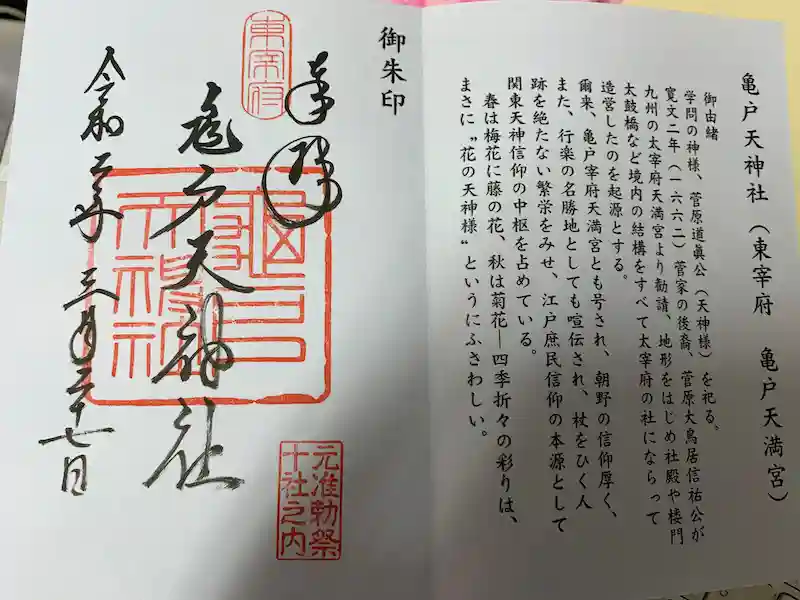 亀戸天神社（東宰府　亀戸天満宮）
御由緒
学問の神様、菅原道眞公（天神様）を祀る。
寛文二年（一六六二）菅家の後裔、菅原大鳥居信祐公が
九州の太宰府天満宮より勧請、地形をはじめ社殿や楼門
太鼓橋など境内の結構をすべて太宰府の社にならって
造営したのを起源とする。
爾来、亀戸宰府天満宮とも号され、朝野の信仰厚く、
また、行楽の名勝地としても喧伝され、杖をひく人
跡を絶たない繁栄をみせ、江戸庶民信仰の本源として
関東天神信仰の中枢を占めている。
春は梅花に藤の花、秋は菊花―四季折々の彩りは、
まさに〝花の天神様〟というにふさわしい。
御朱印
奉拝
東宰府
亀戸天神社
亀戸
天神社
元准勅祭
十社之内
令和二年三月二十七日